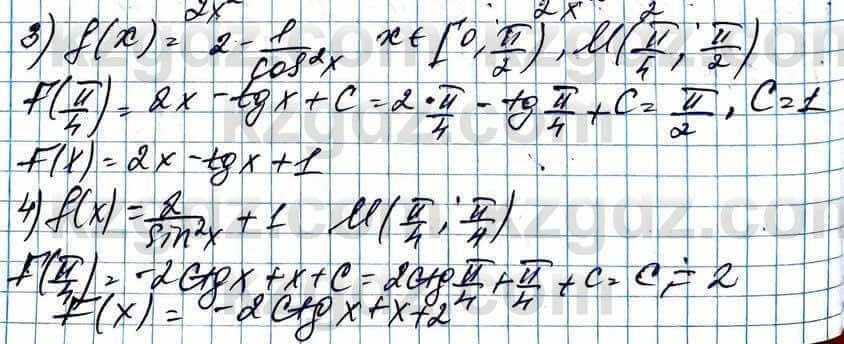 2x 2x 2
3) f(x) = 2 - 1/cos²x x ∈ [0; π/2), M(π/4; π/2)
F(π/4) = 2x - tgx + C = 2·π/4 - tg π/4 + C = π/2, C = 1
F(x) = 2x - tgx + 1
4) f(x) = 2/sin²x + 1 M(π/4; π/4)
F(π/4) = -2ctgx + x + C = 2ctg π/4 + π/4 + C = C = 2
F(x) = -2ctgx + x + 2
kzgdz.com